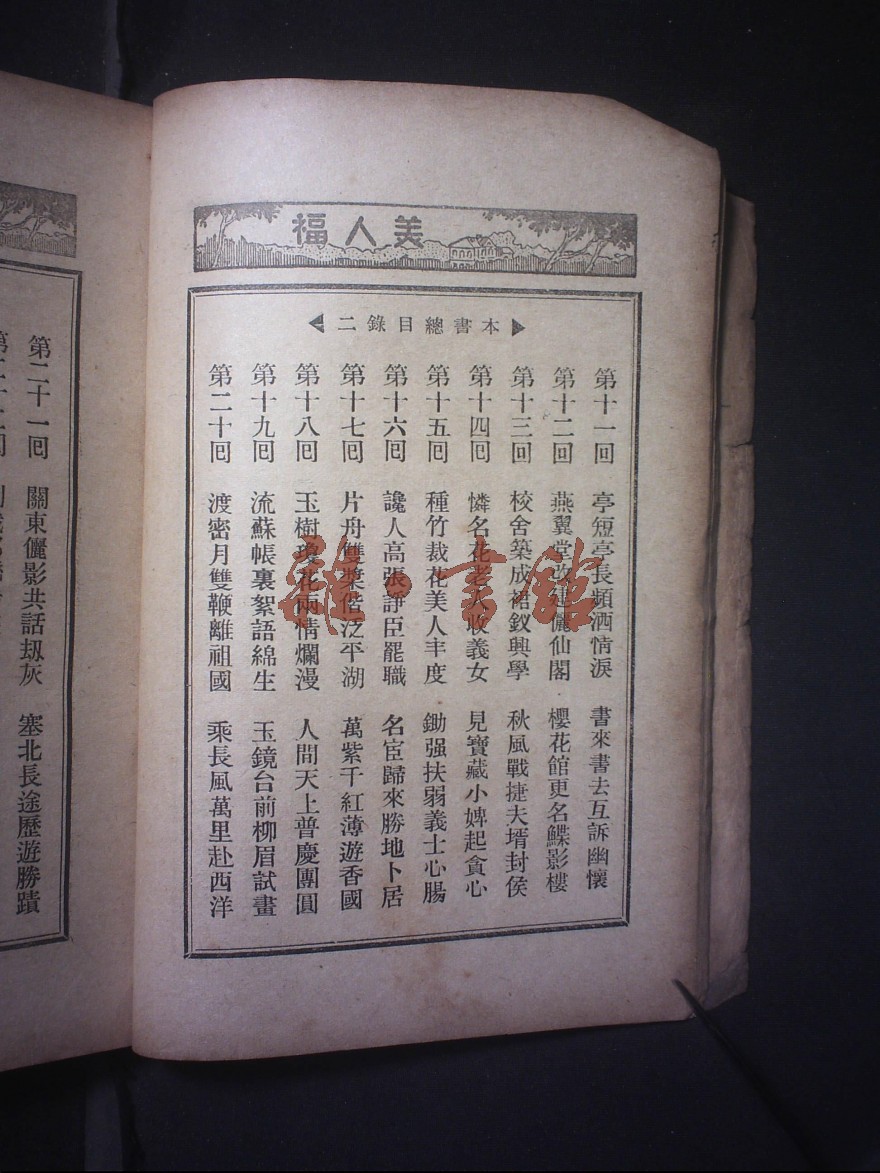 美人福
本書總目錄二
第十一回 亭短亭長頻洒情淚 書來書去互訴幽懷
第十二回 燕翼堂改建儷仙閣 櫻花館更名鰈影樓
第十三回 校舍築成裙釵興學 秋風戰捷夫壻封侯
第十四回 憐名花老人收義女 見寶藏小婢起貪心
第十五回 種竹裁花美人丰度 鋤强扶弱義士心腸
第十六回 讒人高張諍臣罷職 名宦歸來勝地卜居
第十七回 片舟雙槳偕泛平湖 萬紫千紅薄遊香國
第十八回 玉樹瓊花兩情爛漫 人間天上普慶團圓
第十九回 流蘇帳裏絮語綿生 玉鏡台前柳眉試畫
第二十回 渡密月雙鞭離祖國 乘長風萬里赴西洋
第二十一回 關東儷影共話刼灰 塞北長途歷遊勝蹟